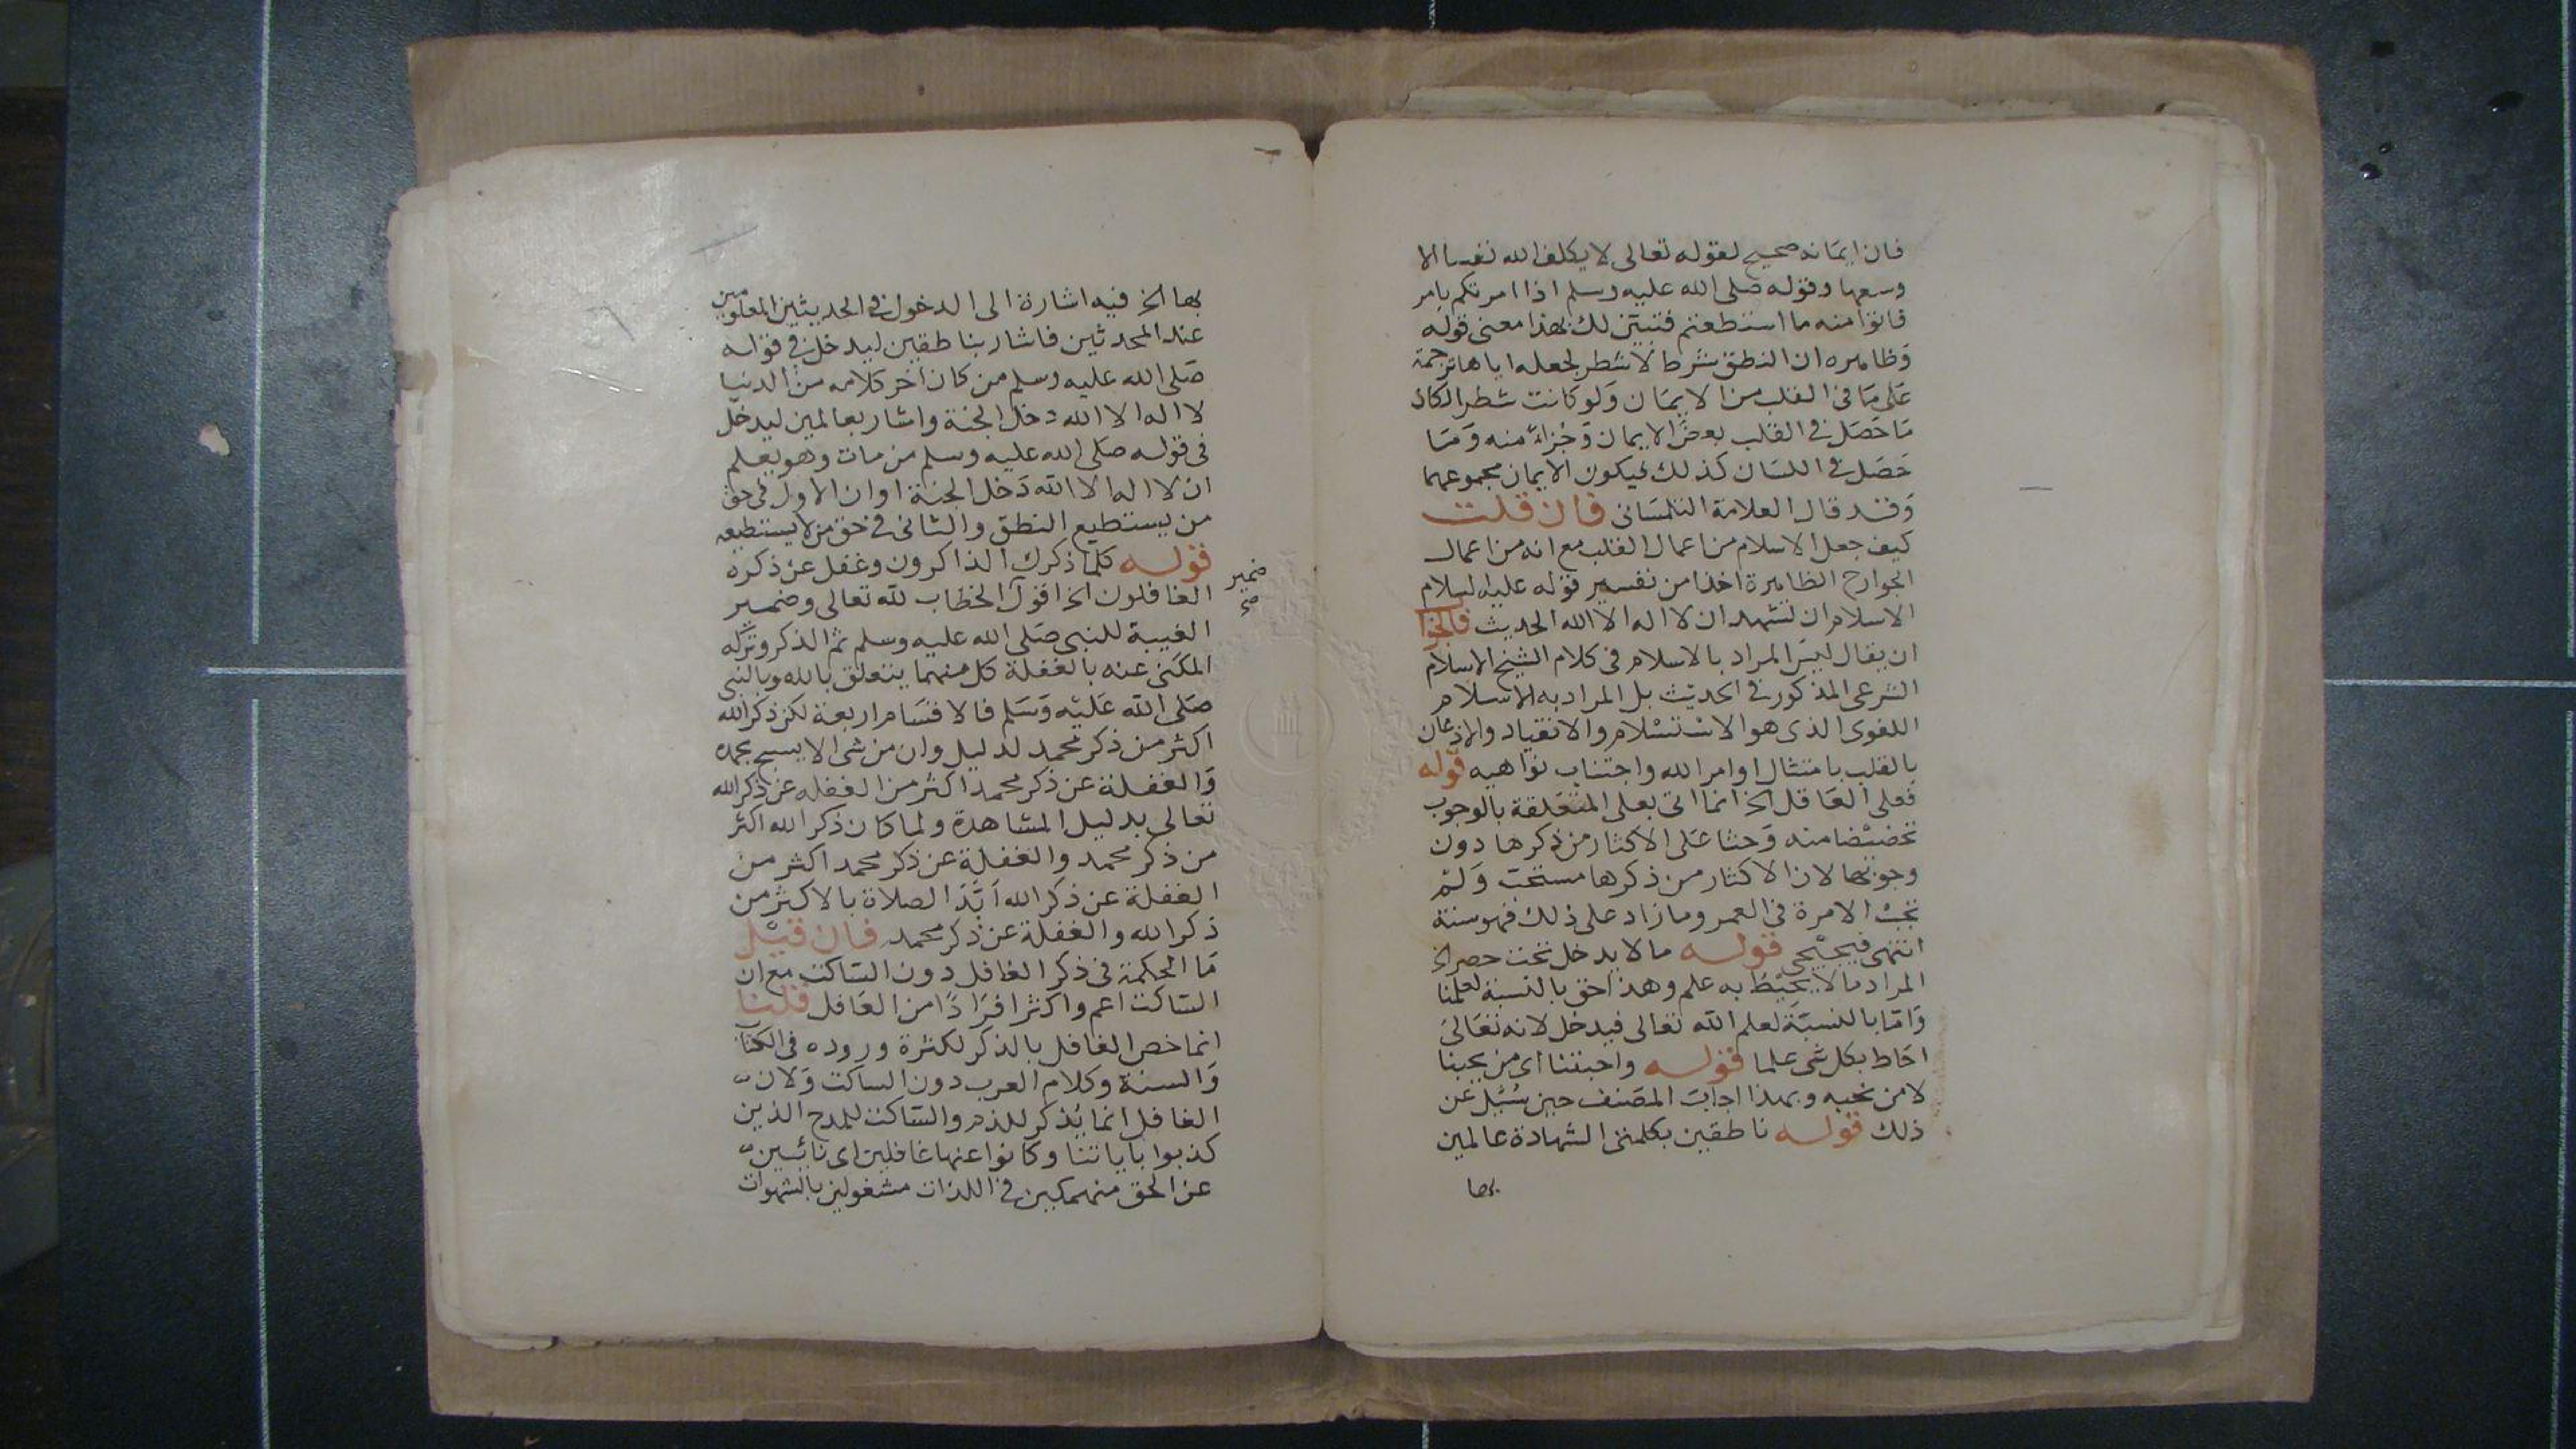 فان ايمانه صحيح لقوله تعالى لا يكلف الله نفسا الا
وسعها وقوله صلى الله عليه وسلم اذا امرتكم بامر
فاتوا منه ما استطعتم فتبين لك بهذا معنى قوله
وظاهره ان النطق شرط لا شطر لجعله اياها ترجمة
على ما في القلب من الايمان ولو كانت شطرا لكان
ما حصل في القلب بعض الايمان وجزاء منه وما
حصل في اللسان كذلك فيكون الايمان مجموعهما
وقد قال العلامة التلمساني فان قلت
كيف جعل الاسلام من اعمال القلب مع انه من اعمال
الجوارح الظاهرة اخذا من تفسير قوله عليه السلام
الاسلام ان تشهد ان لا اله الا الله الحديث فالجوا
ان يقال ليس المراد بالاسلام في كلام الشيخ الاسلام
الشرعى المذكور في الحديث بل المراد به الاسلام
اللغوى الذى هو الاستسلام والانقياد والاذعان
بالقلب بامتثال اوامر الله واجتناب نواهيه قوله
فعلى العاقل الخ انما اتى بعلى المتعلقة بالوجوب
تحضيضا منه وحثا على الاكثار من ذكرها دون
وجوبها لان الاكثار من ذكرها مستحب ولم
تجب الا مرة في العمر وما زاد على ذلك فهو سنة
انتهى فيجيجى قوله ما لا يدخل تحت حصر الخ
المراد ما لا يحيط به علم وهذا حق بالنسبة لعلمنا
واما بالنسبة لعلم الله تعالى فيدخل لانه تعالى
احاط بكل شى علما قوله واحبتنا اى من يحبنا
لا من نحبه وبهذا اجاب المصنف حين سئيل عن
ذلك قوله ناطقين بكلمتى الشهادة عالمين
بها
بها الخ فيه اشارة الى الدخول في الحديثين المعلومين
عند المحدثين فاشار بناطقين ليدخل في قوله
صلى الله عليه وسلم من كان آخر كلامه من الدنيا
لا اله الا الله دخل الجنة واشار بعالمين ليدخل
في قوله صلى الله عليه وسلم من مات وهو يعلم
ان لا اله الا الله دخل الجنة او ان الاول في حق
من يستطيع النطق والثانى في حق من لا يستطيعه
قوله كلما ذكرك الذاكرون وغفل عن ذكره
الغافلون الخ اقول الخطاب لله تعالى وضمير
ضمير
صح
الغيبة للنبى صلى الله عليه وسلم ثم الذكر وتركه
المكنى عنه بالغفلة كل منهما يتعلق بالله وبالنبى
صلى الله عليه وسلم فالاقسام اربعة لكن ذكر الله
اكثر من ذكر محمد لدليل وان من شى الا يسبح بحمده
والغفلة عن ذكر محمد اكثر من الغفله عن ذكر الله
تعالى بدليل المشاهدة ولما كان ذكر الله اكثر
من ذكر محمد والغفلة عن ذكر محمد اكثر من
الغفلة عن ذكر الله ابد الصلاة بالاكثر من
ذكر الله والغفلة عن ذكر محمد فان قيل
ما الحكمة في ذكر الغافل دون الساكت مع ان
الساكت اعم واكثر افرادا من الغافل قلنا
انما خص الغافل بالذكر لكثرة وروده في الكتاب
والسنة وكلام العرب دون الساكت ولان
الغافل انما يذكر للذم والساكت للمدح الذين
كذبوا باياتنا وكانوا عنها غافلين اى نائيين
عن الحق منهمكين في اللذات مشغولين بالشهوات